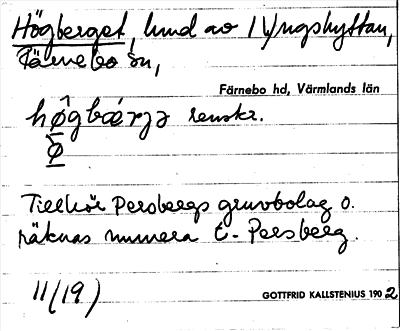 Högberget, hmd av 1 Yngshyttan,
Färnebo sn,
Färnebo hd, Värmlands län
hø̂gbærjə renskr.
ø
Tillhör Persbergs gruvbolag o.
räknas numera t. Persberg.
11/(19)
GOTTFRID KALLSTENIUS 1902